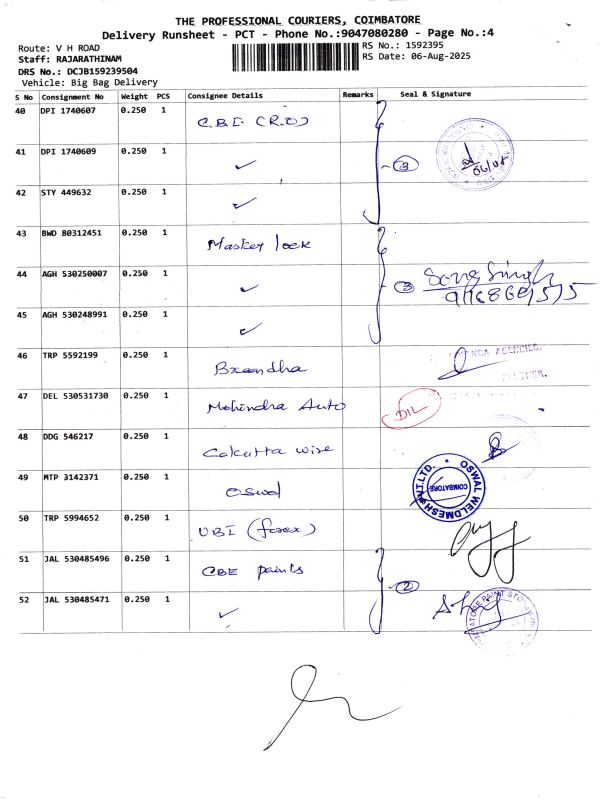 THE PROFESSIONAL COURIERS, COIMBATORE
Delivery Runsheet - PCT - Phone No.:9047080280 - Page No.:4
Route: V H ROAD
RS No.: 1592395
Staff: RAJARATHINAM
RS Date: 06-Aug-2025
DRS No.: DCJB159239504
Vehicle: Big Bag Delivery
S No Consignment No Weight PCS Consignee Details Remarks Seal & Signature
40 DPI 1740607 0.250 1 C.B.I (R.O)
41 DPI 1740609 0.250 1 ✓ 3 06/08
42 STY 449632 0.250 1 ✓
43 BWD 80312451 0.250 1 Master lock
44 AGH 530250007 0.250 1 ✓ 3 Song Singh
45 AGH 530248991 0.250 1 ✓
46 TRP 5592199 0.250 1 AGENCIES.
47 DEL 530531730 0.250 1 Mahindra Auto DIL
48 DDG 546217 0.250 1 Calcutta wise
49 MTP 3142371 0.250 1 Oswal OSWAL WELDMESH PVT.LTD. COIMBATORE
50 TRP 5994652 0.250 1 UBI (forex)
51 JAL 530485496 0.250 1 CBE paints
52 JAL 530485471 0.250 1 ✓ 2 PAINT STORES